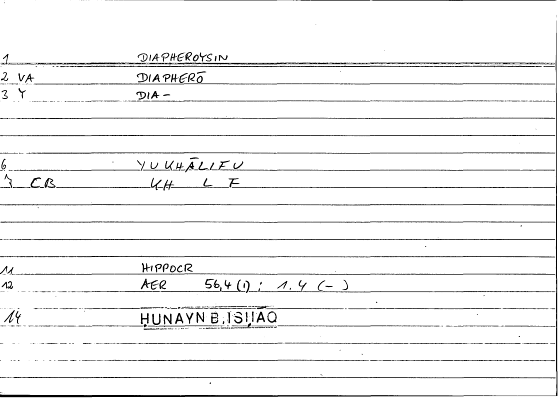 1 DIAPHEROYSIN
2 VA DIAPHERŌ
3 Y DIA-
6 YUKHĀLIFU
7 CB KH L F
11 HIPPOCR
12 AER 56,4 (1) : 1.4 (-)
14 ḤUNAYN B. ISḤĀQ